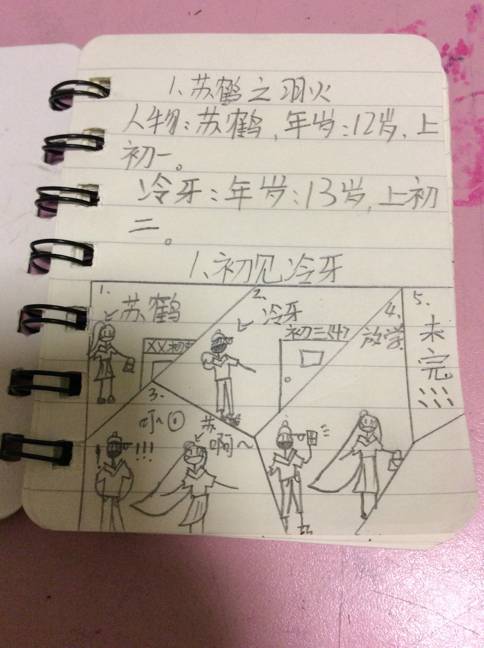 1.苏鹤之羽火
人物:苏鹤,年岁:12岁,上
初一。
冷牙:年岁:13岁,上初
二。
1.初见冷牙
1.
苏鹤
XX初
2.
冷牙
3.
苏
啊~
!!!
4.
放学
5.
未
完